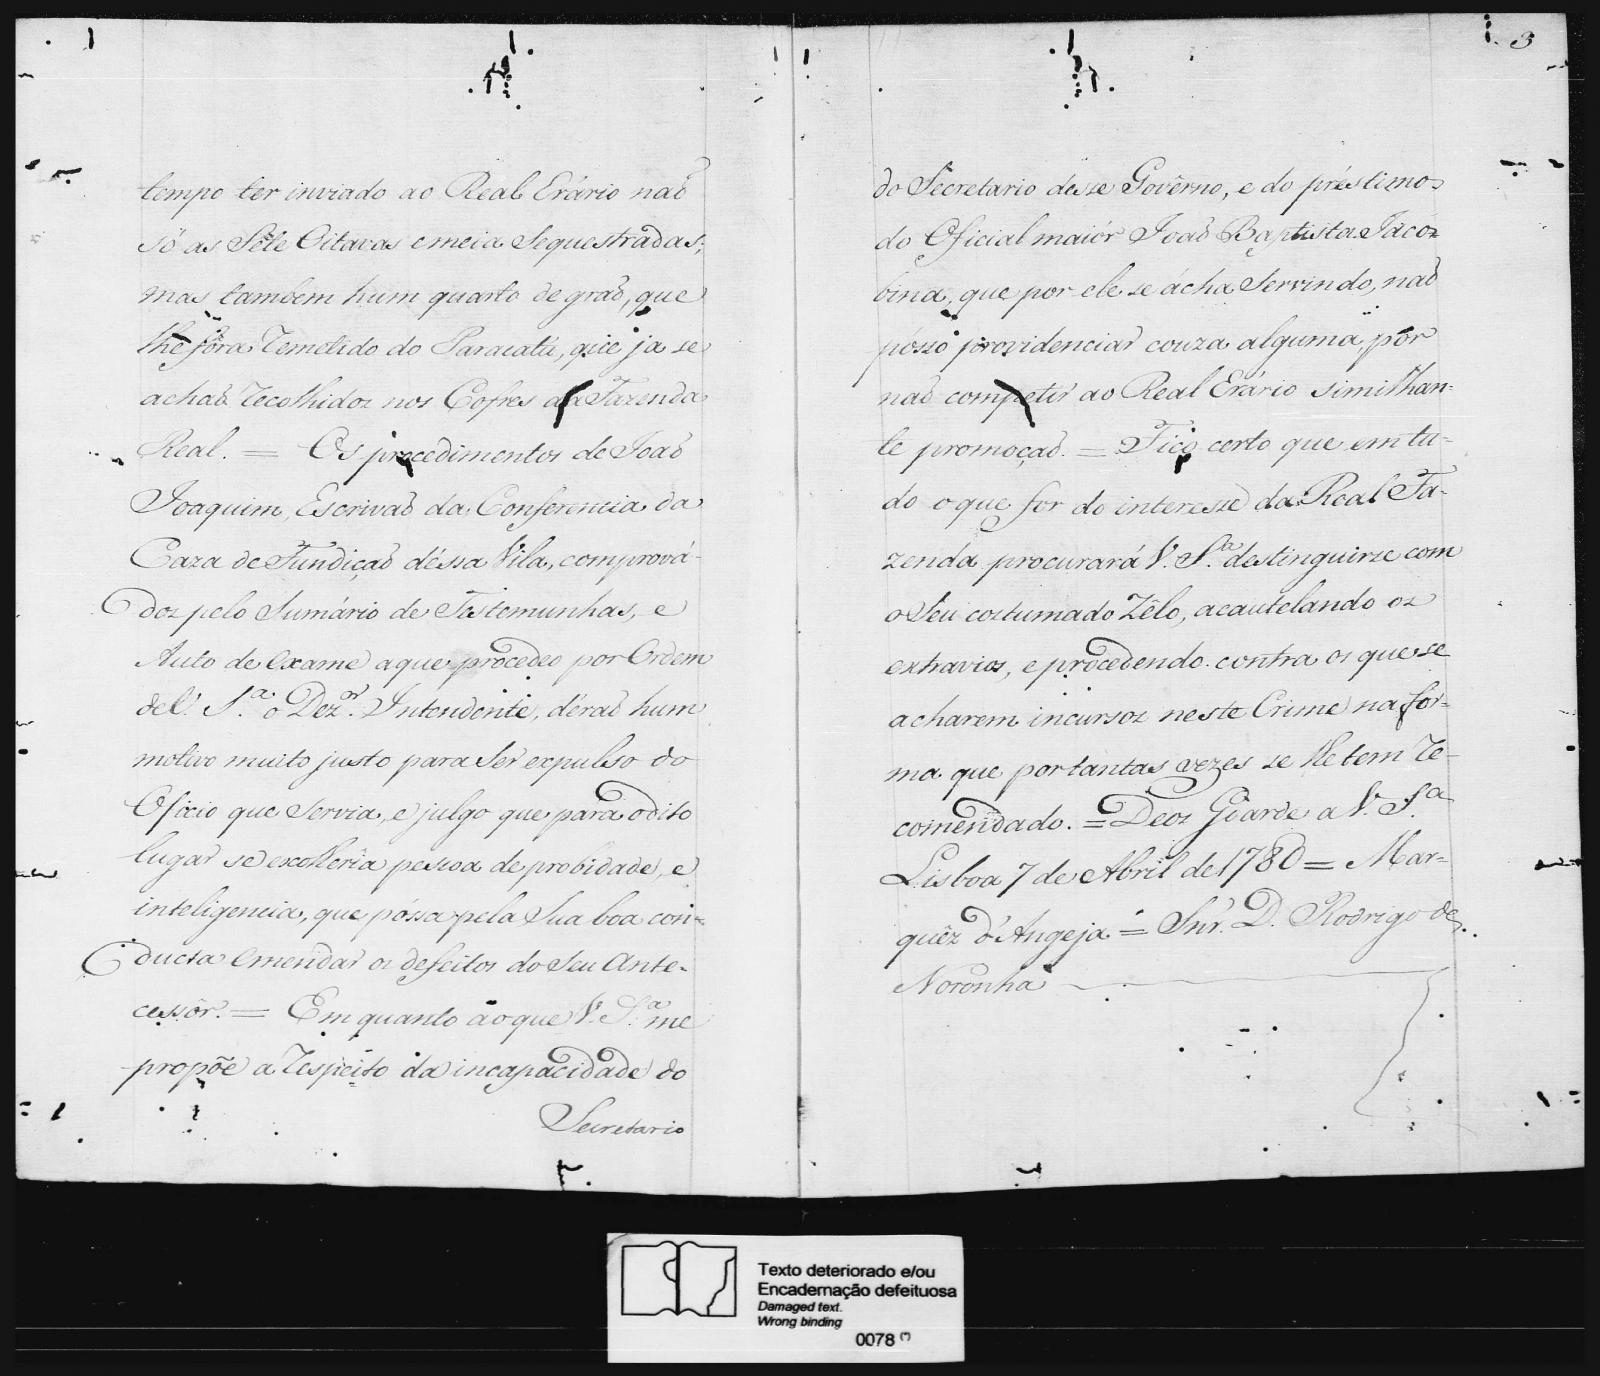 tempo ter inviado ao Real Erário naõ
só as Sete Oitavas e meia Sequestradas;
mas tambem hum quarto de graõ, que
lhe fôra remetido do Paracatú, que ja se
achaõ recolhidos nos Cofres da Fazenda
Real. = Os procedimentos de Joaõ
Joaquim, Escrivaõ da Conferencia da
Caza de Fundiçaõ déssa Vila, comprová-
dos pelo Sumário de Testemunhas, e
Auto de exame a que procedeo por Ordem
de V. S.ª o Dez.or Intendente, déraõ hum
motivo muito justo para Ser expulso do
Oficio que Servia, e julgo que para o dito
lugar se escolheria pessoa de probidade, e
inteligencia, que póssa pela Sua boa con-
ducta emendar os defeitos do Seu Ante-
cessôr. = Em quanto ao que V. S.ª me
propõe a respeito da incapacidade do
Secretario
3
do Secretario desse Govêrno, e do préstimo
do Oficial maiór Joaõ Baptista Jaco-
bina, que por ele se ácha Servindo, naõ
pósso providenciar couza alguma, por
naõ competir ao Real Erário similhan-
te promoçaõ. = Fico certo que em tu-
do o que for do interesse da Real Fa-
zenda procurará V. S.ª destinguirse com
o Seu costumado Zêlo, acautelando os
extravios, e procedendo contra os que se
acharem incursos neste Crime na fór-
ma que por tantas vezes se lhe tem re-
comendado. = Deos Goarde a V. S.ª
Lisboa 7 de Abril de 1780 = Mar-
quêz d'Angeja = Snr. D. Rodrigo de
Noronha
Texto deteriorado e/ou
Encadernação defeituosa
Damaged text.
Wrong binding
0078 (*)